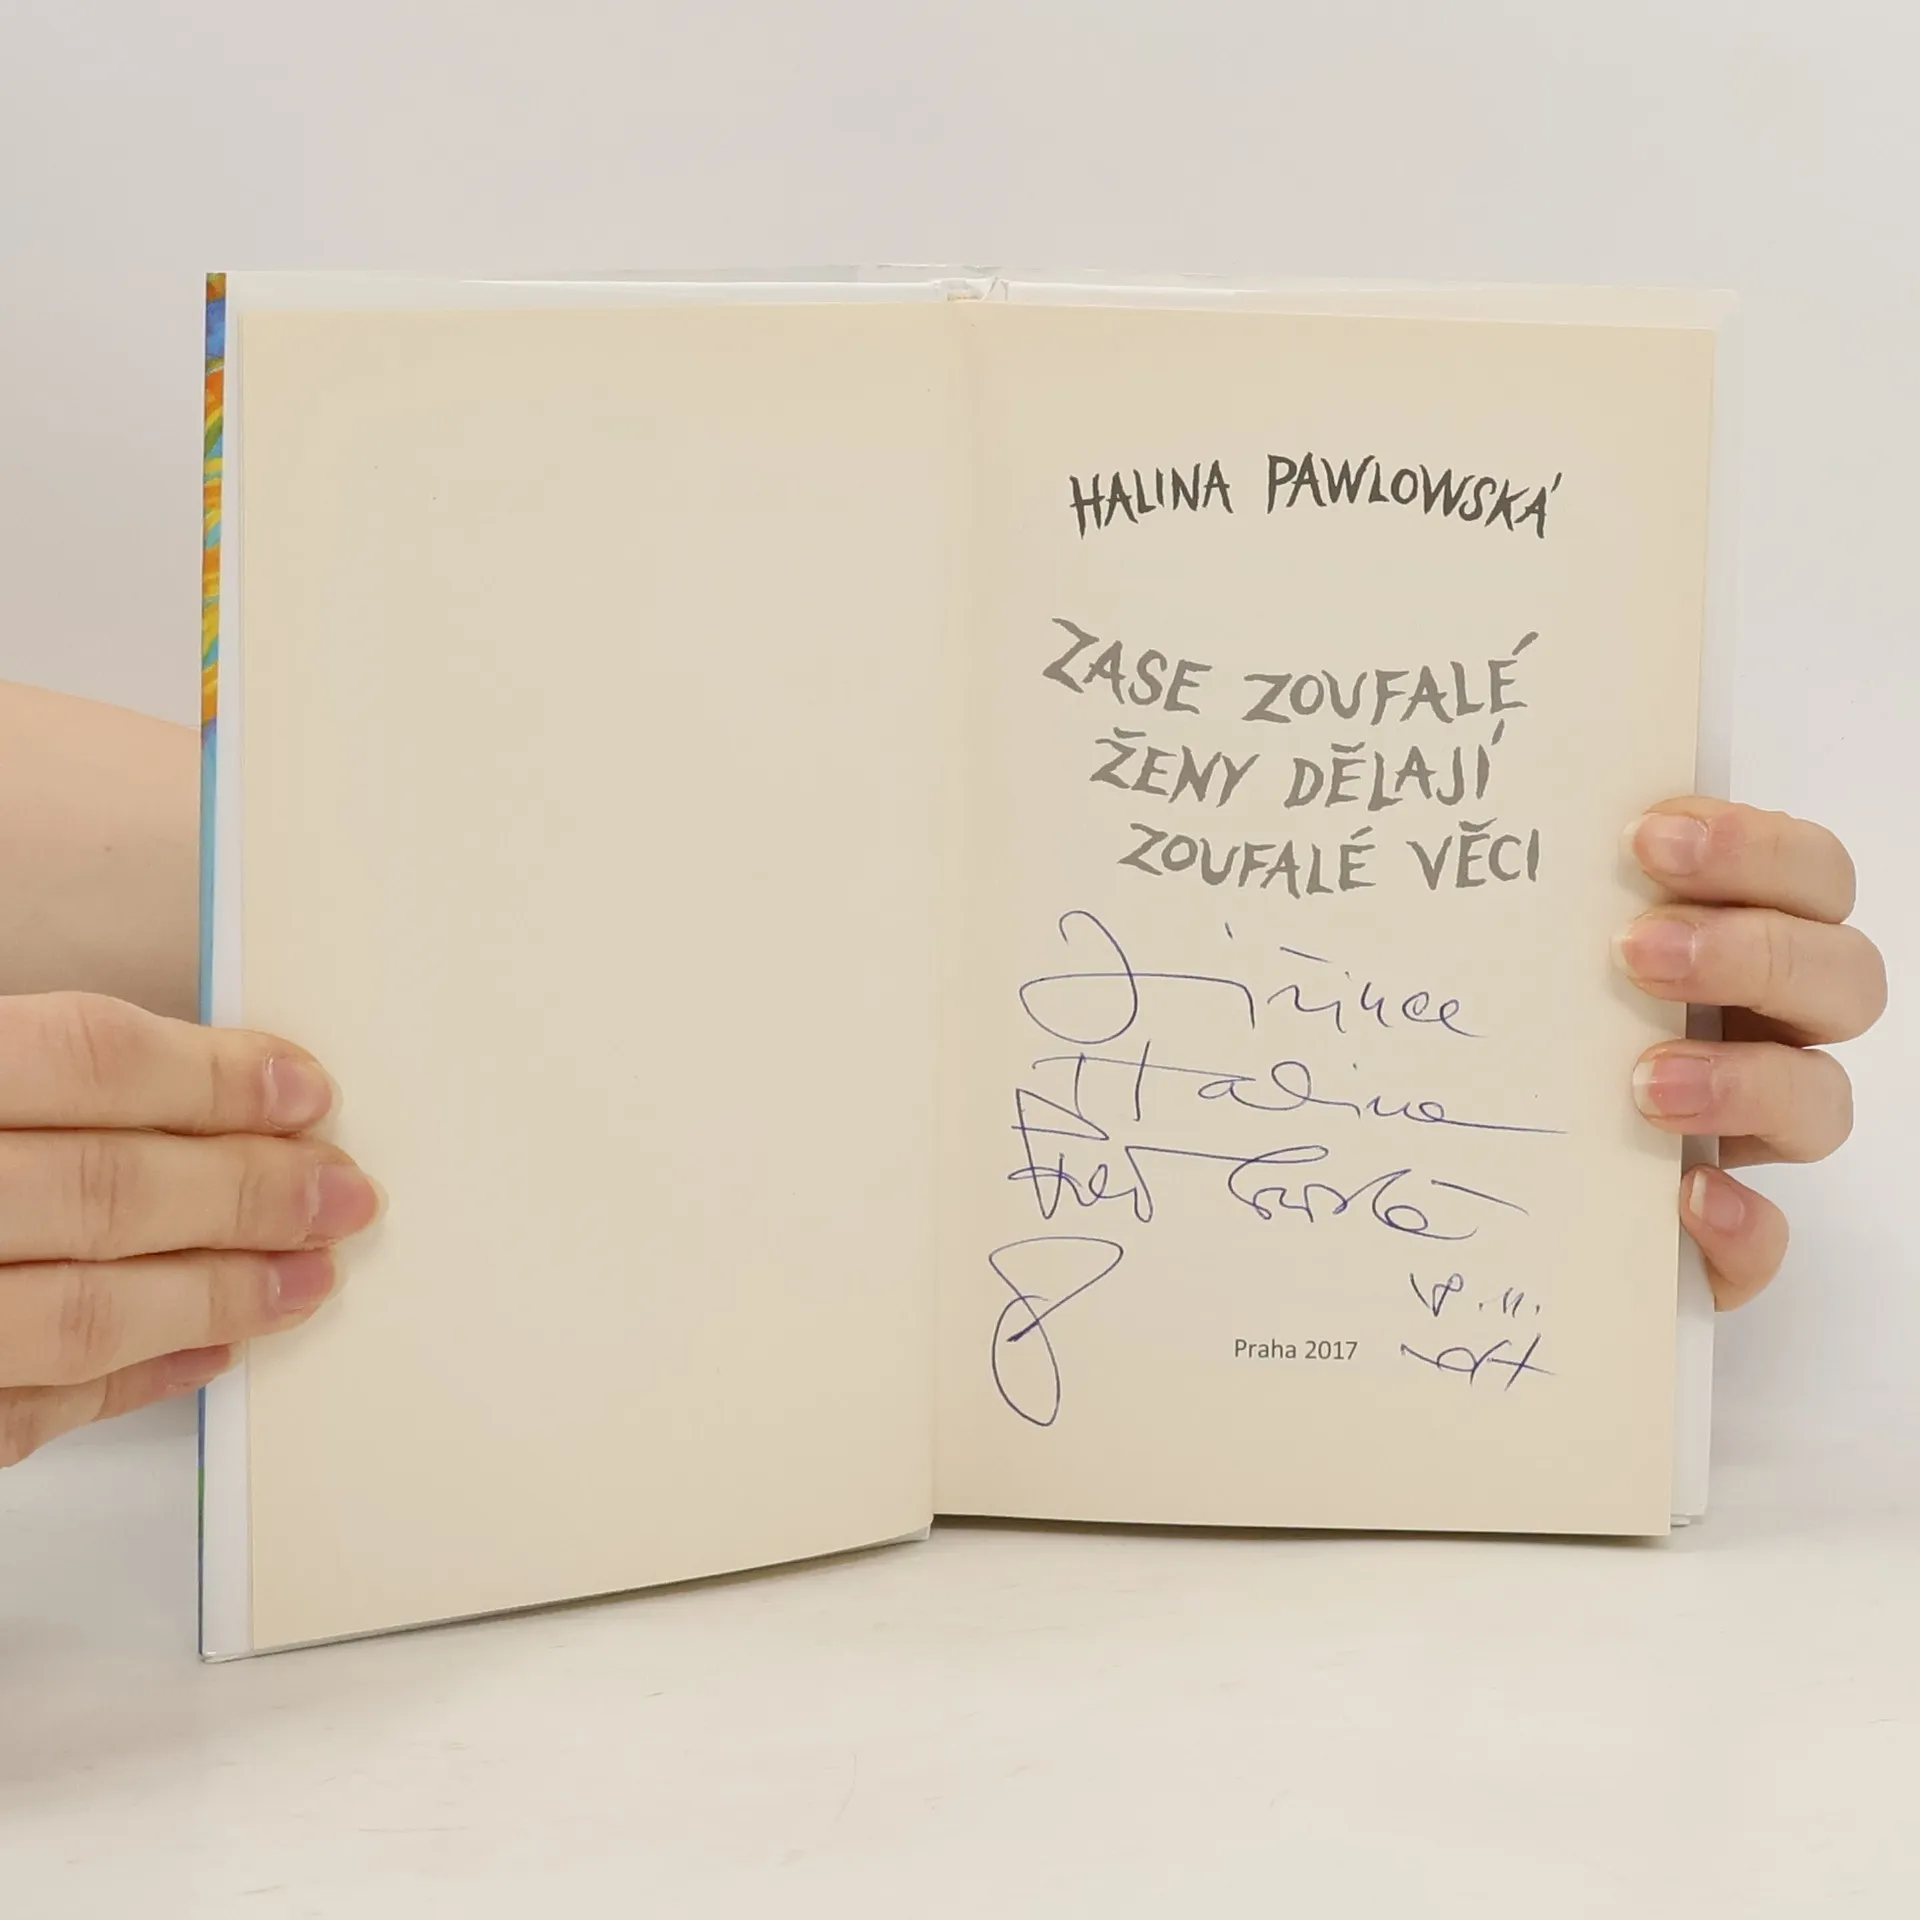 HALINA PAWLOWSKÁ
ZASE ZOUFALÉ
ŽENY DĚLAJÍ
ZOUFALÉ VĚCI
Jiřince
Halina
Praha 2017